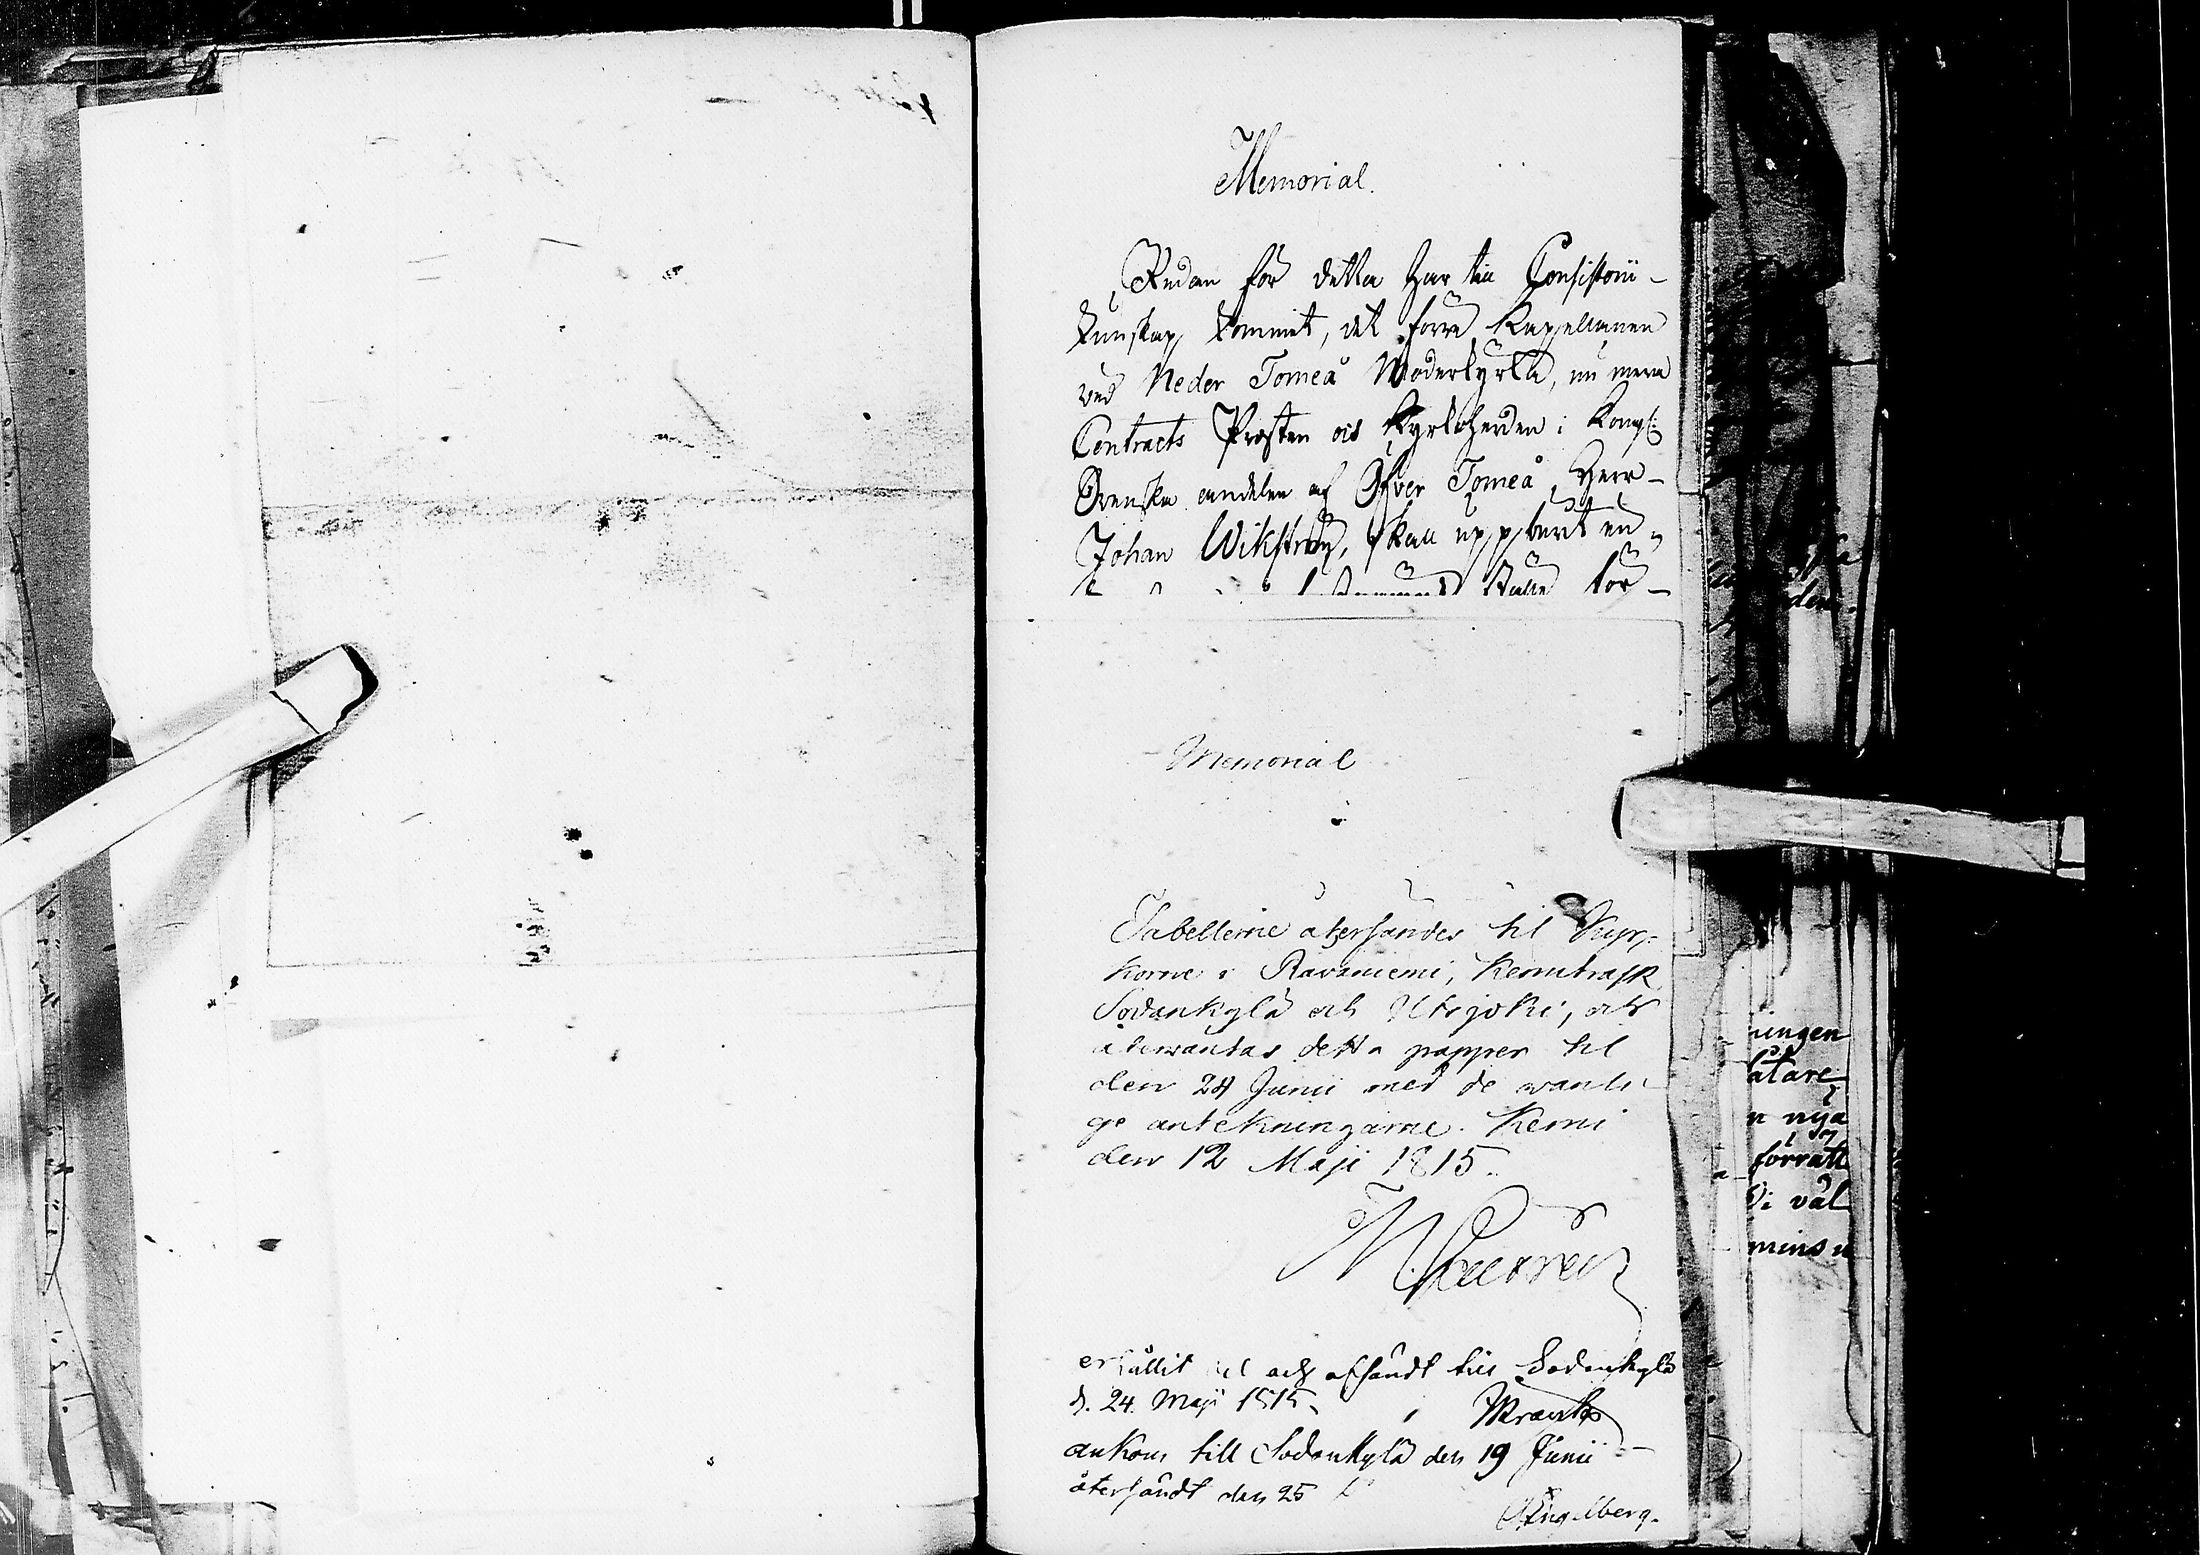 Memorial.
Redan för detta har till Consistorii
kunskap kommit, at förra Kapellanen
ved Neder Torneå Moderkyrka, nu mera
Contracts Prosten och Kyrkoherden i Kongl:
Svenska andelen af Öfver Torneå Herr
Johan Wikström, skall uppburit en
Memorial
Tabellerne återsändes til Kyr-
korne i Ravaniemi, Kemiträsk
Sodankylä och Utsjoki, och
återväntas detta papper til
den 24 Junii med de vanli-
ge antekningarne. Kemi
den 12 Maji 1815.
erhållit och afsändt till Sodankylä
d. 24. Maji 1815.
ankom till Sodankylä den 19 Junii
återsändt den 25
Engelberg.
ningen
åtare
n nya
förrätt
Di väl